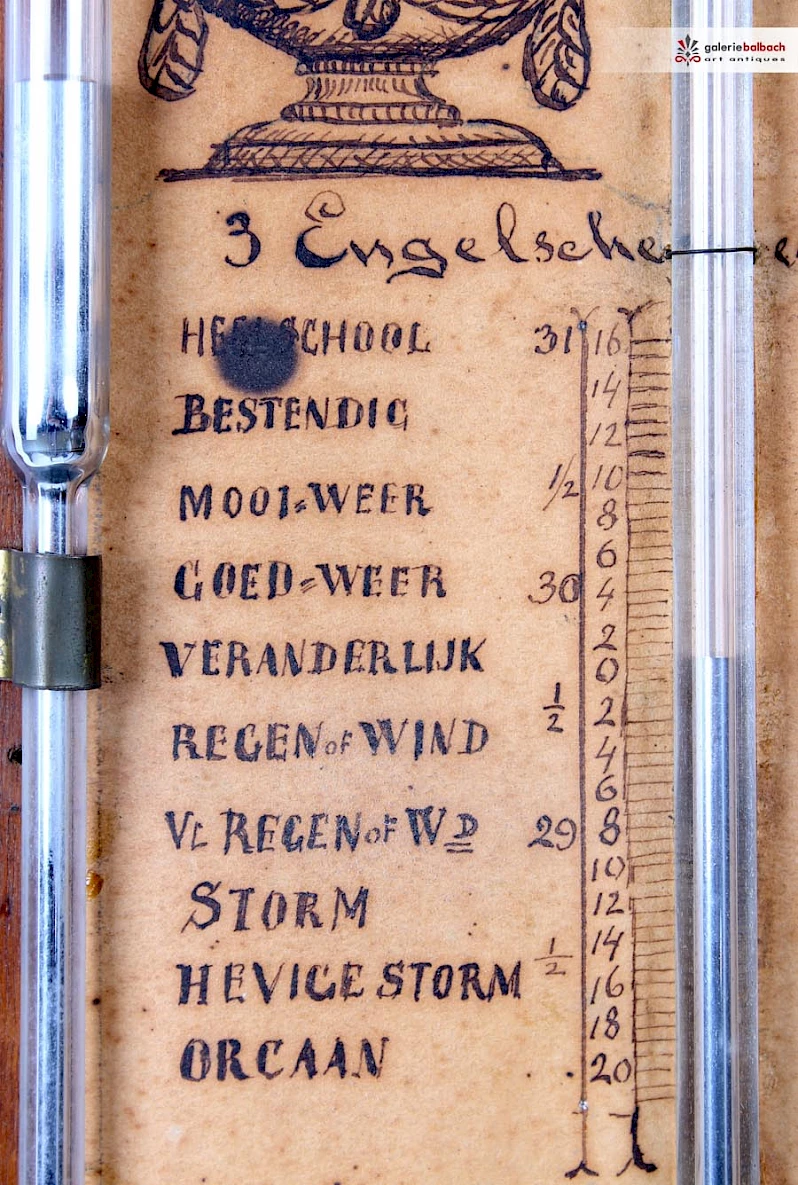 galeriebalbach
art antiques
3 Engelsche
HEELSCHOOL 31 16
14
BESTENDIG
12
MOOI=WEER 1/2 10
8
6
GOED=WEER 30 4
2
VERANDERLIJK 0
1/2 2
REGEN OF WIND 4
6
VL REGEN OF WD 29 8
10
STORM 12
1/2 14
HEVIGE STORM 16
18
ORCAAN 20